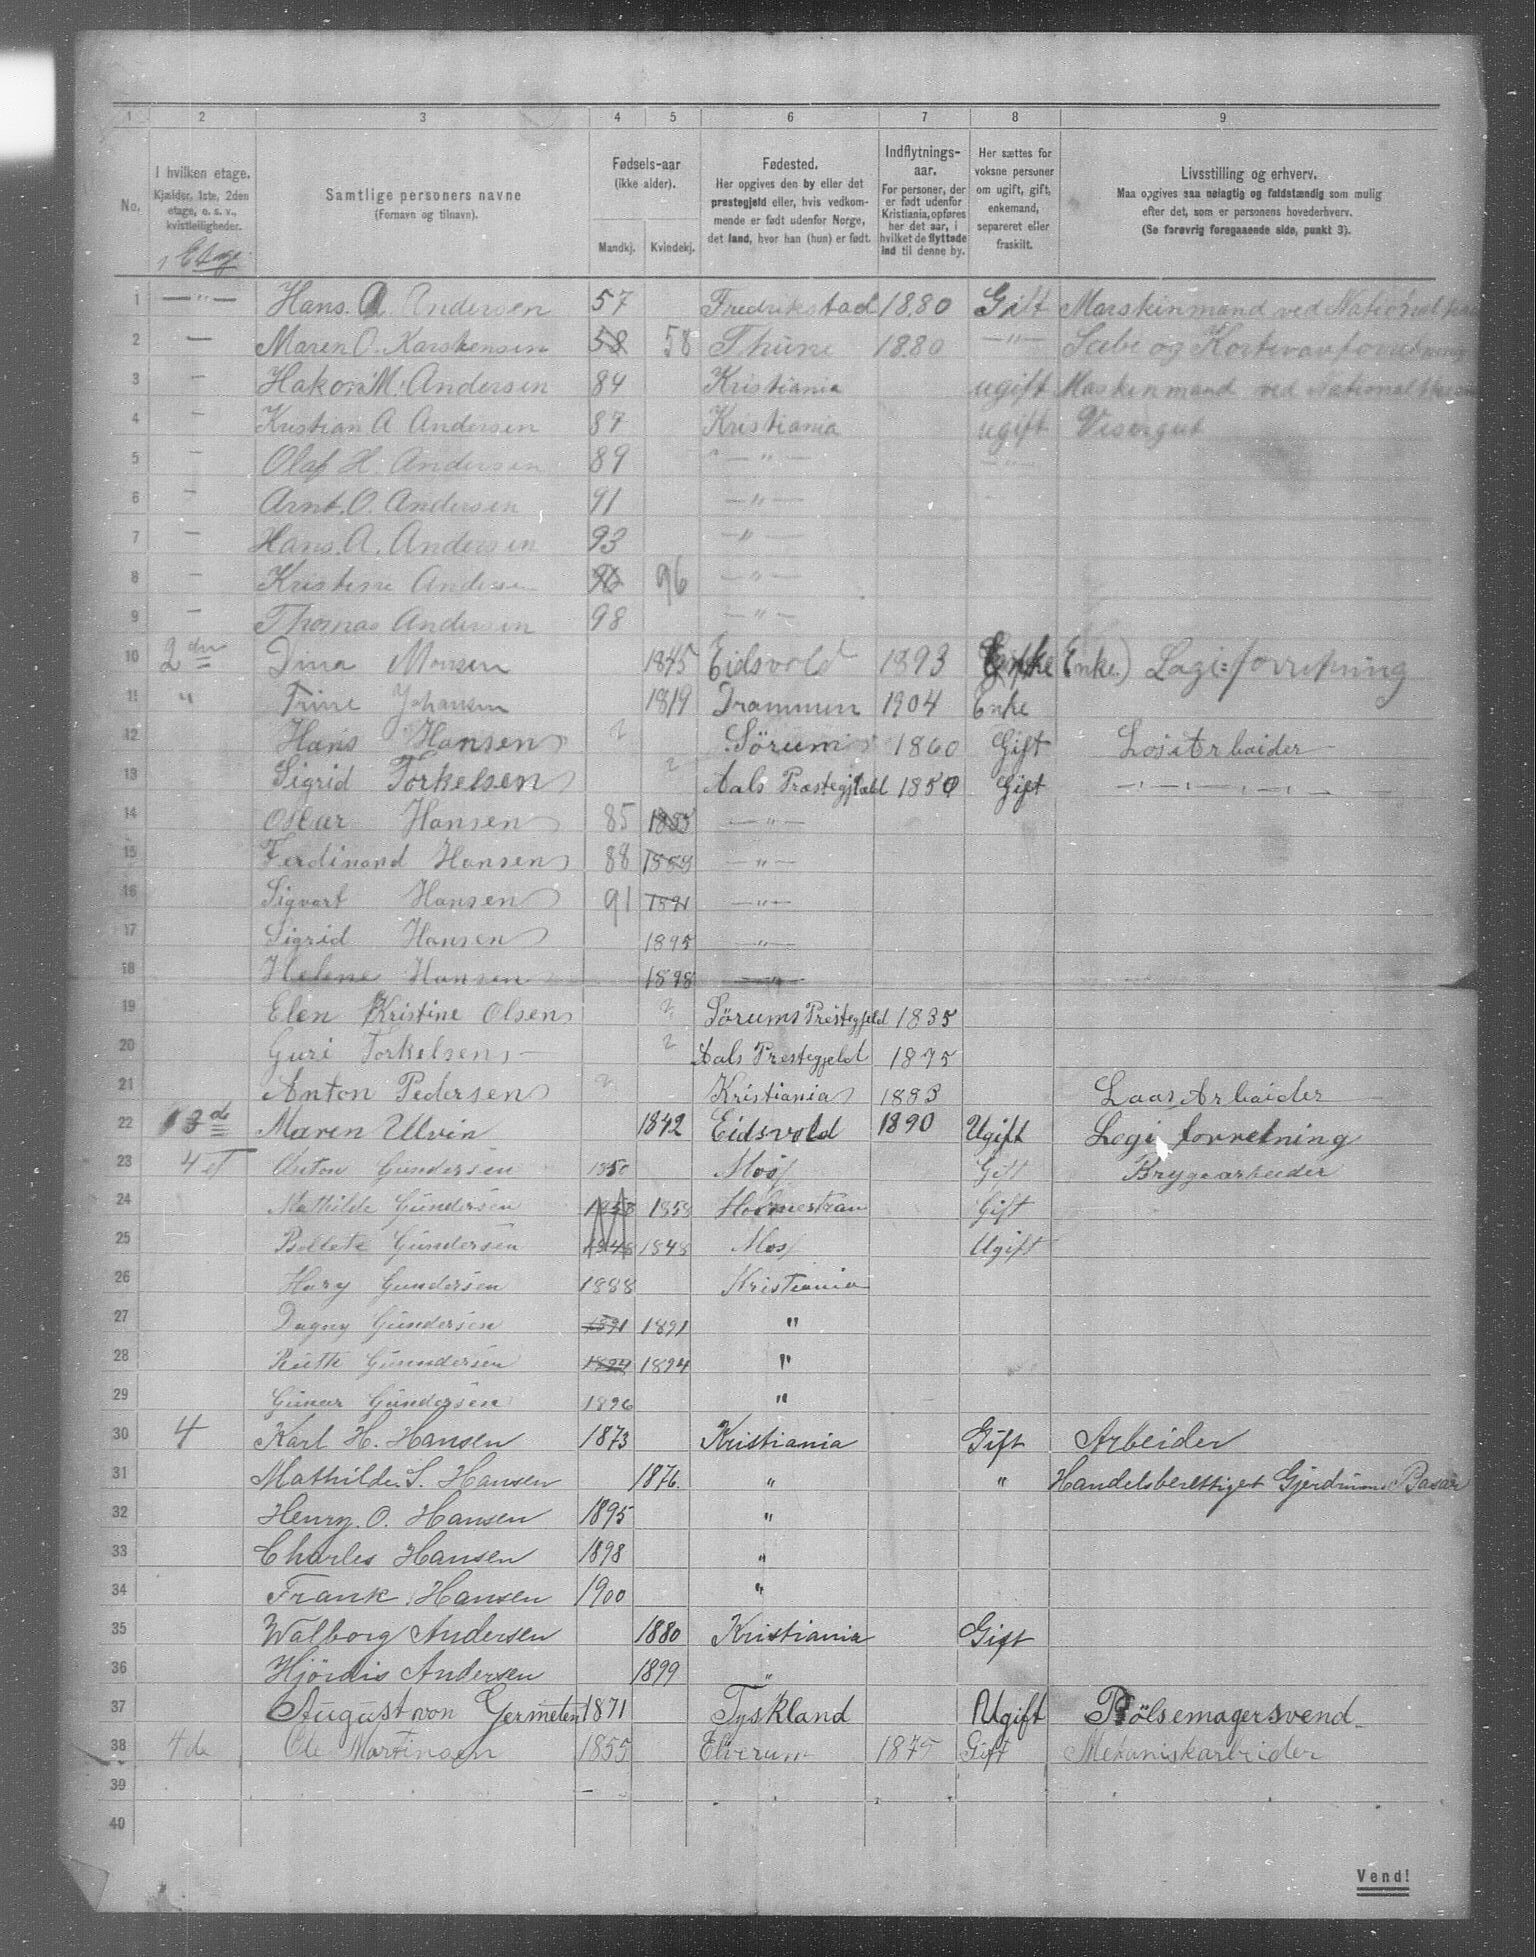 1 2 3 4 5 6 7 8 9
No.
I hvilken etage.
Kjælder, 1ste, 2den etage, o. s. v., kvistleiligheder.
Samtlige personers navne
(Fornavn og tilnavn).
Fødsels-aar
(ikke alder).
Mandkj. Kvindekj.
Fødested.
Her opgives den by eller det prestegjeld eller, hvis vedkommende er født udenfor Norge, det land, hvor han (hun) er født.
Indflytnings-aar.
For personer, der er født udenfor Kristiania, opføres her det aar, i hvilket de flyttede ind til denne by.
Her sættes for voksne personer om ugift, gift, enkemand, separeret eller fraskilt.
Livsstilling og erhverv.
Maa opgives saa nøiagtig og fuldstændig som mulig efter det, som er personens hovederhverv.
(Se forøvrig foregaaende side, punkt 3).
1 Etage
1 — " — Hans. A Andersen 57 Fredrikstad 1880 Gift Marskinmand ved National
2 — Maren O. Karstensen 58 58 Thune 1880 — " — Sæbe og
3 — Hakon M. Andersen 84 Kristiania ugift Maskenmand ved National
4 — Kristian A Andersen 87 Kristiania ugift Visergut
5 — Olaf H. Andersen 89 — " — — " —
6 — Arnt. O. Andersen 91 — " —
7 — Hans. A. Andersen 93 — " —
8 — Kristine Andersen 96 — " —
9 — Thomas Andersen 98 — " —
10 2den Dina Monsen 1845 Eidsvold 1893 Enke (Enke.) Logi=forretning
11 " Trine Johansen 1819 Drammen 1904 Enke
12 Hans Hansen Sörum 1860 Gift LosiArbaider
13 Sigrid Torkelsen Aals Præstegjæld 1850 Gift — " — " — " —
14 Oscar Hansen 85 1885 — " —
15 Ferdinand Hansen 88 1888 — " —
16 Sigvart Hansen 91 1891 — " —
17 Sigrid Hansen 1895 — " —
18 Helene Hansen 1898 — " —
19 Elen Kristine Olsen Sörums Prestegjeld 1835
20 Guri Torkelsen Aals Prestegjeld 1875
21 Anton Pedersen Kristiania 1883 Arbaider
22 3de Maren Ulvin 1842 Eidsvold 1890 Ugift Logi forretning
23 4 et Anton Gundersen 1850 Moss Gift Bryggearbeider
24 Mathilde Gundersen 1858 1858 Holmestran Gift
25 Bollete Gundersen 1848 1848 Moss Ugift
26 Hary Gundersen 1888 Kristiania
27 Dagny Gundersen 1891 1891 "
28 Ruth Gunndersen 1894 1894 "
29 Gunar Gundersen 1896 "
30 4 Karl H. Hansen 1873 Kristiania Gift Arbeider
31 Mathilde. S. Hansen 1876. " " Handelsberettiget Gjerdrums Basar
32 Henry. O. Hansen 1895 "
33 Charles Hansen 1898 "
34 Frank. Hansen 1900 "
35 Walborg Andersen 1880 Kristiania Gift
36 Hjördis Andersen 1899 "
37 August von Germeten 1871 Tyskland Ugift Pölsemagersvend
38 4de Ole Martinsen 1855 Elverum 1875 Gift Mekaniskarbeider
39
40
Vend!